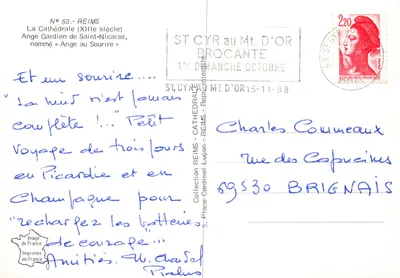 N° 53. - REIMS
La Cathédrale (XIIIe siècle)
Ange Gardien de Saint-Nicaise,
nommé « Ange au Sourire »
Et un sourire....
"La nuit n'est jamais
complète !..." Petit
Voyage de trois jours
en Picardie et en
Champagne pour
"recharger les batteries
de courage"...
Amitiés. M. Chantal
image
de France
Imprimée
en France
Collection REIMS - CATHÉDRALE
5, Place Cardinal Luçon - REIMS -
ST CYR au Mt. D'OR
BROCANTE
1er DIMANCHE OCTOBRE
ST.CYR AU MT.D'OR 15-11-88
2,20
Charles Commeaux
rue des Capucines
69530 BRIGNAIS